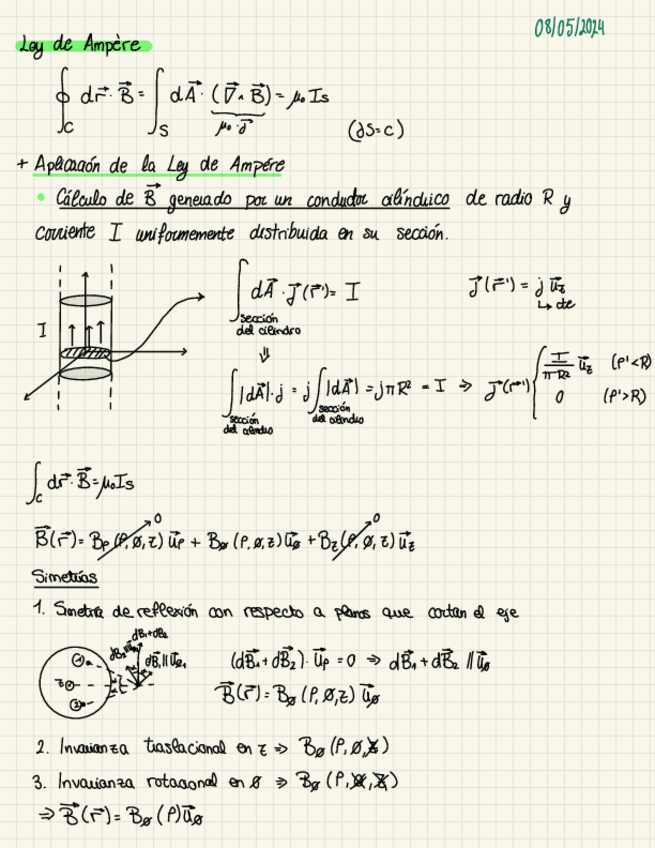 08/05/2024
Ley de Ampère
∮_C d\vec{r}·\vec{B} = ∫_S d\vec{A}·(\vec{∇}∧\vec{B}) = μ₀ I_S
μ₀·\vec{J}
(∂S=C)
+ Aplicación de la Ley de Ampére
• Cálculo de \vec{B} generado por un conductor cilíndrico de radio R y
corriente I uniformemente distribuida en su sección.
I
∫ d\vec{A}·\vec{J}(\vec{r}') = I
sección
del cilindro
\vec{J}(\vec{r}') = j \vec{u}_z
↳ cte
⇓
∫ |d\vec{A}|·j = j ∫ |d\vec{A}| = jπR² = I ⇒ \vec{J}(\vec{r}') { I/(π·R²) \vec{u}_z (ρ'<R)
0 (ρ'>R)
sección del cilindro sección del cilindro
∫_C d\vec{r}·\vec{B} = μ₀I_S
\vec{B}(\vec{r}) = B_ρ(ρ,ø,z) \vec{u}_ρ + B_ø(ρ,ø,z) \vec{u}_ø + B_z(ρ,ø,z) \vec{u}_z
0 0
Simetrías
1. Simetría de reflexión con respecto a planos que cortan el eje
dB₁+dB₂
(d\vec{B}₁+d\vec{B}₂)·\vec{u}_ρ = 0 ⇒ d\vec{B}₁+d\vec{B}₂ // \vec{u}_ø
\vec{B}(\vec{r}) = B_ø(ρ,ø,z) \vec{u}_ø
2. Invarianza traslacional en z ⇒ B_ø(ρ,ø,z)
3. Invarianza rotacional en ø ⇒ B_ø(ρ,ø,z)
⇒ \vec{B}(\vec{r}) = B_ø(ρ)\vec{u}_ø